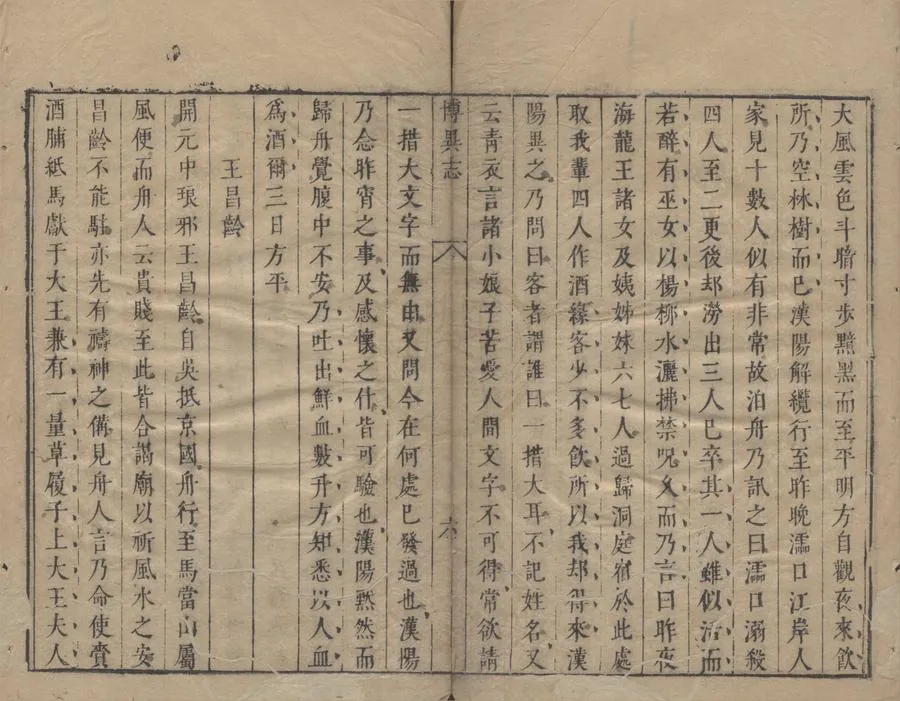 大風雲色斗暗寸步黯黑而至平明方自觀夜來飲
所乃空林樹而已漢陽解纜行至昨晚濡口江岸人
家見十數人似有非常故泊舟乃訊之曰濡口溺殺
四人至二更後却澇出三人已卒其一人雖似活而
若醉有巫女以楊柳水灑拂禁呪久而乃言曰昨夜
海龍王諸女及姨姊妹六七人過歸洞庭宿於此處
取我輩四人作酒緣客少不多飲所以我却得來漢
陽異之乃問曰客者謂誰曰一措大耳不記姓名又
云青衣言諸小娘子苦愛人間文字不可得常欲請
博異志 六
一措大文字而無由又問今在何處已發過也漢陽
乃念昨宵之事及感懷之什皆可驗也漢陽黙然而
歸舟覺腹中不安乃吐出鮮血數升方知悉以人血
爲酒爾三日方平
王昌齡
開元中琅邪王昌齡自吳抵京國舟行至馬當山屬
風便而舟人云貴賤至此皆合謁廟以祈風水之安
昌齡不能駐亦先有禱神之備見舟人言乃命使賫
酒脯紙馬獻于大王兼有一量草履子上大王夫人